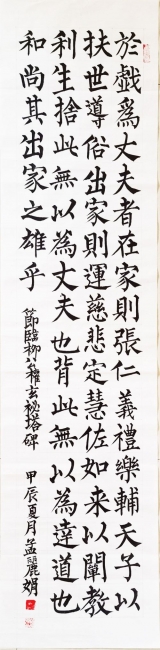 於戲爲丈夫者在家則張仁義禮樂輔天子以
扶世導俗出家則運慈悲定慧佐如来以闡教
利生捨此無以為丈夫也背此無以為達道也
和尚其出家之雄乎
節臨柳公權玄秘塔碑
甲辰夏月孟麗娟